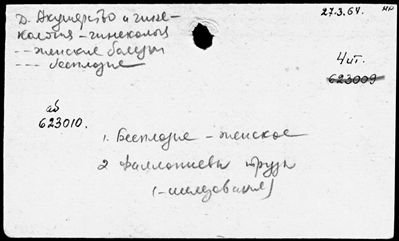 Д. Акушерство и гине-
кология - гинекология
-- женские болезни
--- бесплодие
27.3.64.
4 шт.
623009
аб
623010.
1. Бесплодие - женское
2 Фаллопиевы трубы